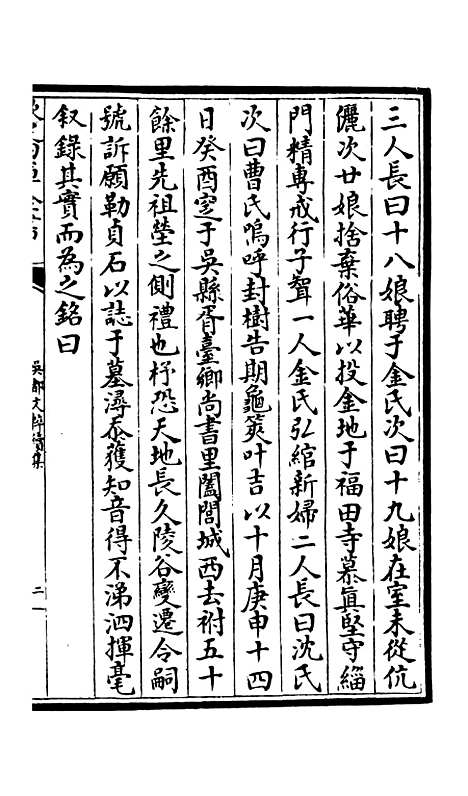 三人長曰十八娘聘于金氏次曰十九娘在室未從伉
儷次廿娘捨棄俗華以投金地于福田寺慕眞堅守緇
門精專戒行子聟一人金氏弘綰新婦二人長曰沈氏
次曰曹氏嗚呼封樹告期龜筴叶吉以十月庚申十四
日癸酉窆于吳縣胥臺鄉尚書里闔閭城西去祔五十
餘里先祖塋之側禮也杍恐天地長久陵谷變遷令嗣
號訴願勒貞石以誌于墓潯忝獲知音得不涕泗揮毫
叙錄其實而為之銘曰
吳都文粹續集